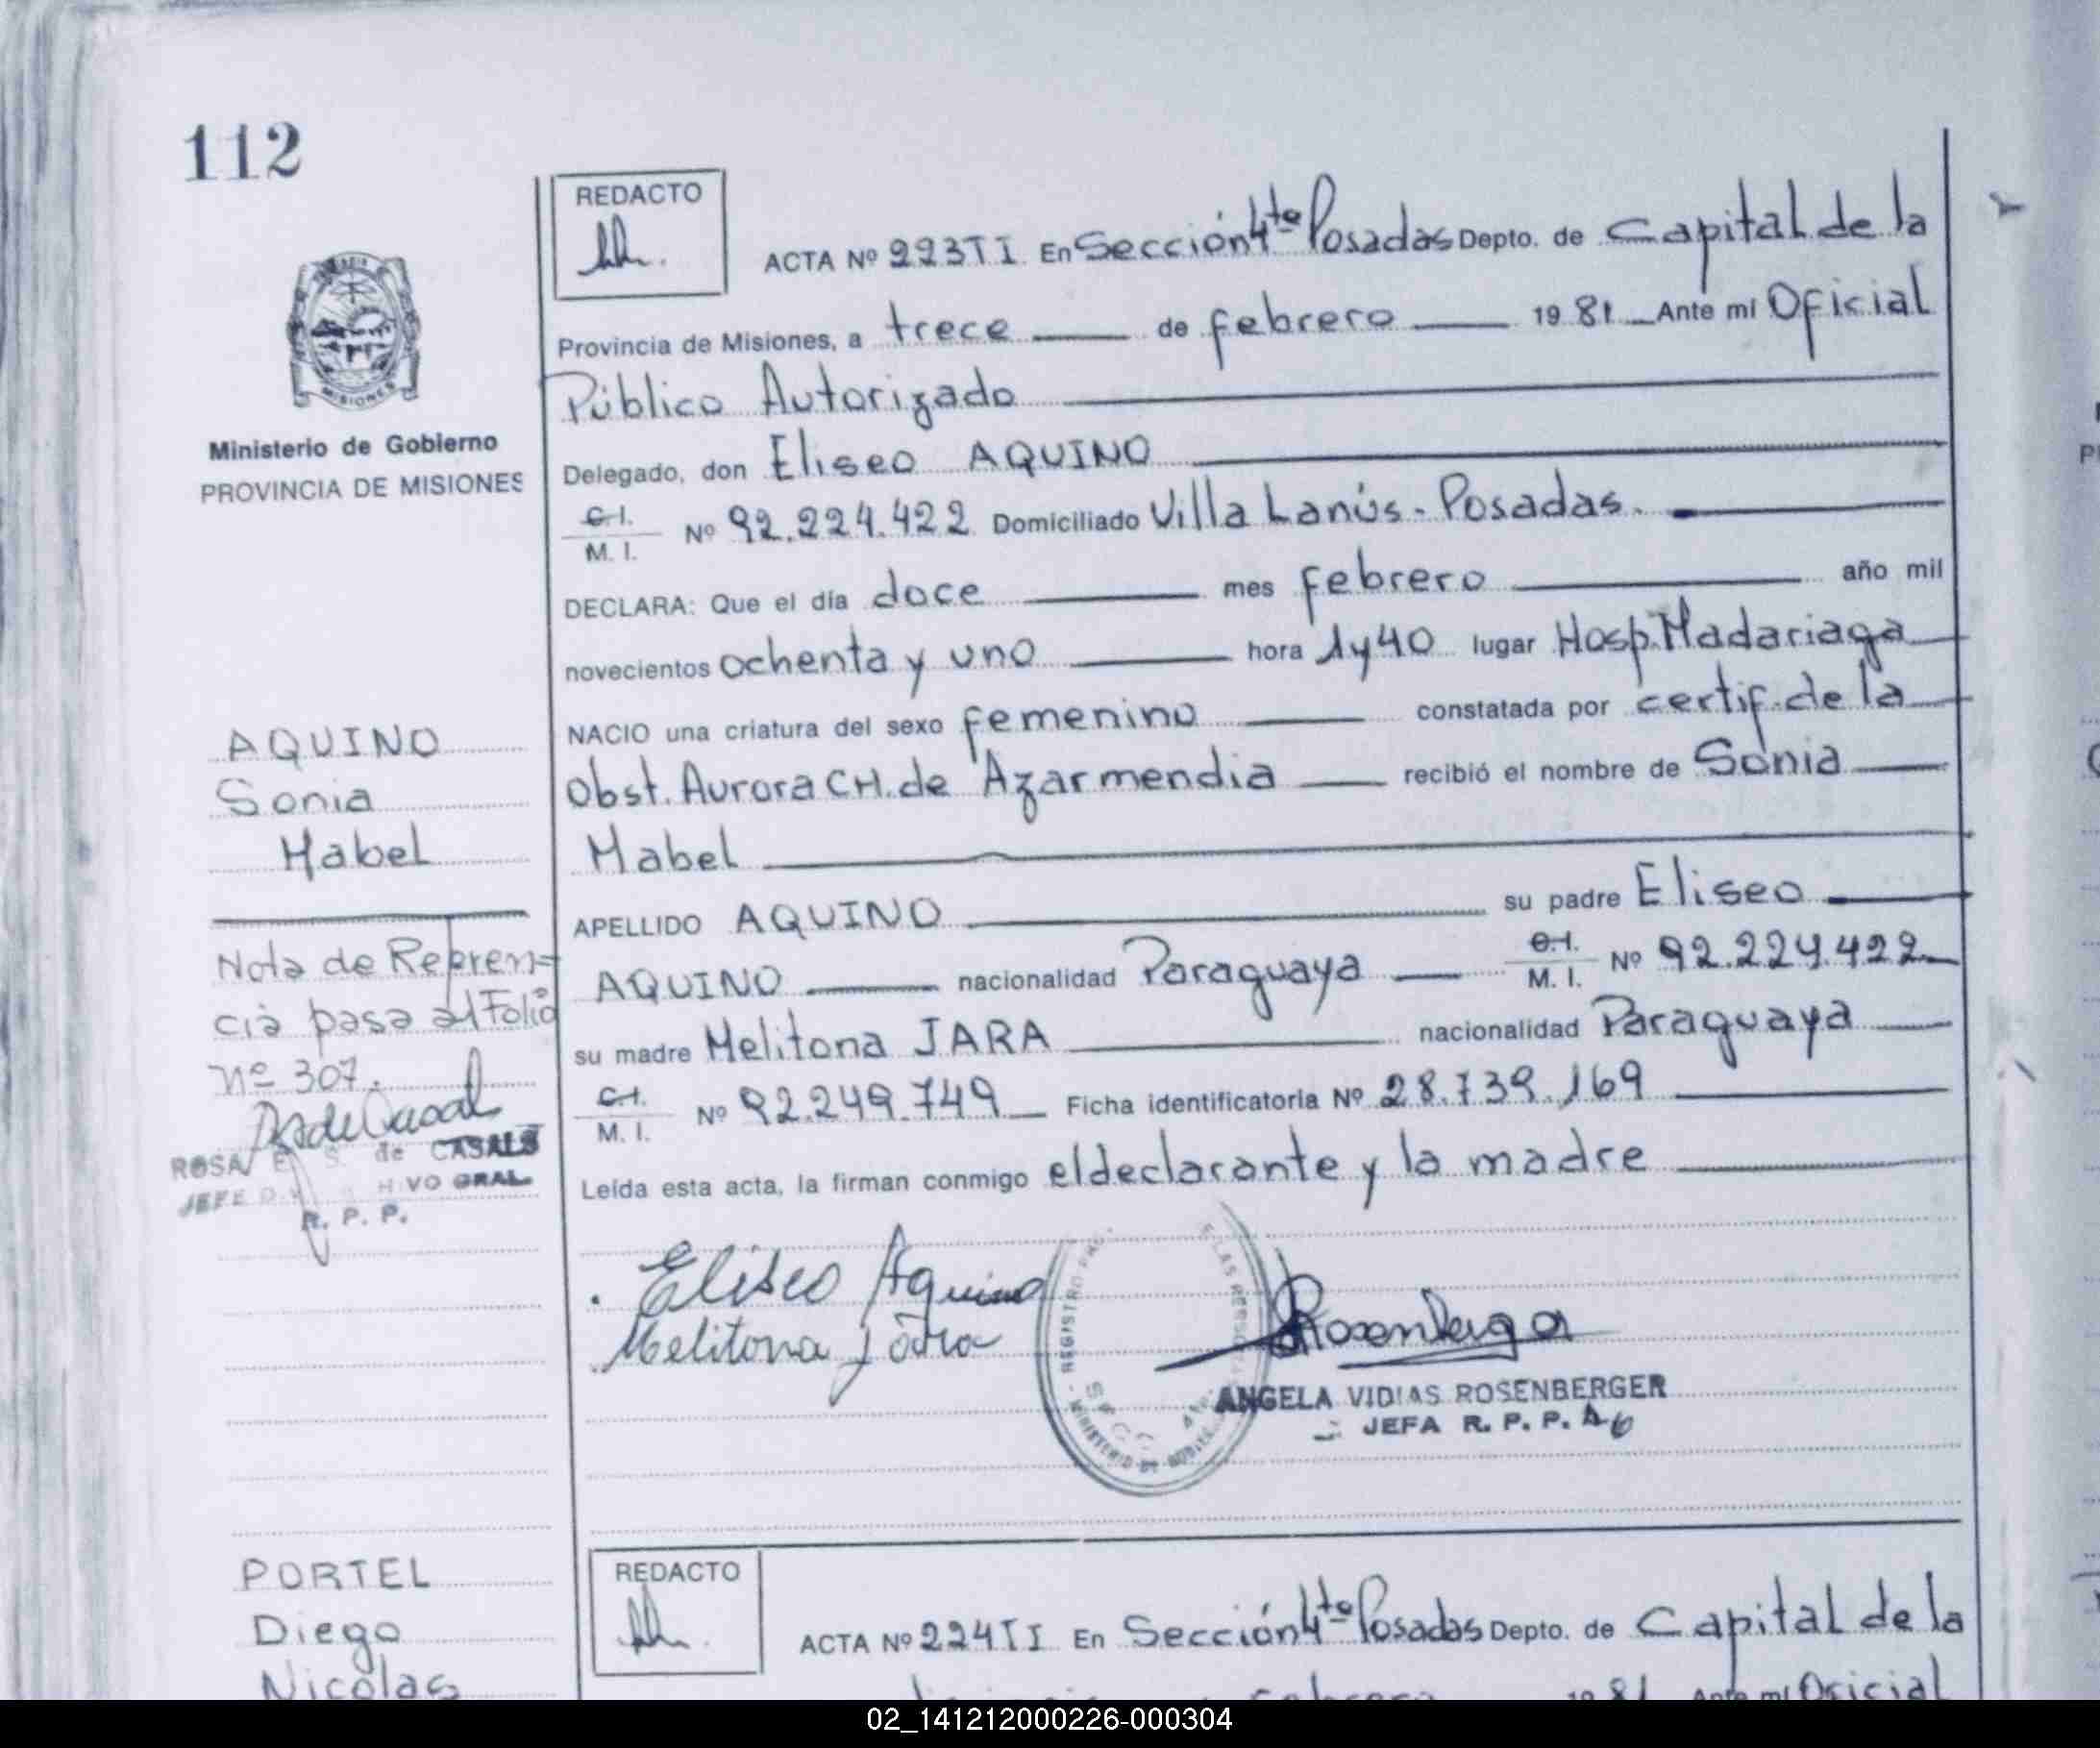 112
REDACTO
ACTA Nº 223 T I En Sección 4ta Posadas Depto. de Capital de la
Provincia de Misiones, a trece de febrero 19 81 Ante mí Oficial
Público Autorizado
Ministerio de Gobierno
PROVINCIA DE MISIONES
MISIONES
Delegado, don Eliseo AQUINO
C.I.
M. I. Nº 92.224.422 Domiciliado Villa Lanús - Posadas.
DECLARA: Que el día doce mes febrero año mil
novecientos ochenta y uno hora 1 y 40 lugar Hosp. Madariaga
NACIO una criatura del sexo femenino constatada por certif. de la
Obst. Aurora CH. de Azarmendia recibió el nombre de Sonia
Mabel
APELLIDO AQUINO su padre Eliseo
AQUINO nacionalidad Paraguaya C.I. M. I. Nº 92.224.422
su madre Melitona JARA nacionalidad Paraguaya
C.I.
M. I. Nº 92.249.749 Ficha identificatoria Nº 28.739.169
Leída esta acta, la firman conmigo el declarante y la madre
AQUINO
Sonia
Mabel
Nota de Referen-
cia pasa al Folio
Nº 307.
ROSA E. S. de CASALS
JEFE VO GRAL.
R. P. P.
Eliseo Aquino
Melitona Jara
Rosenberger
ANGELA VIDIAS ROSENBERGER
JEFA R. P. P.
PORTEL
Diego
Nicolas
REDACTO
ACTA Nº 224 T I En Sección 4ta Posadas Depto. de Capital de la
19 81 Ante mí Oficial
02_141212000226-000304